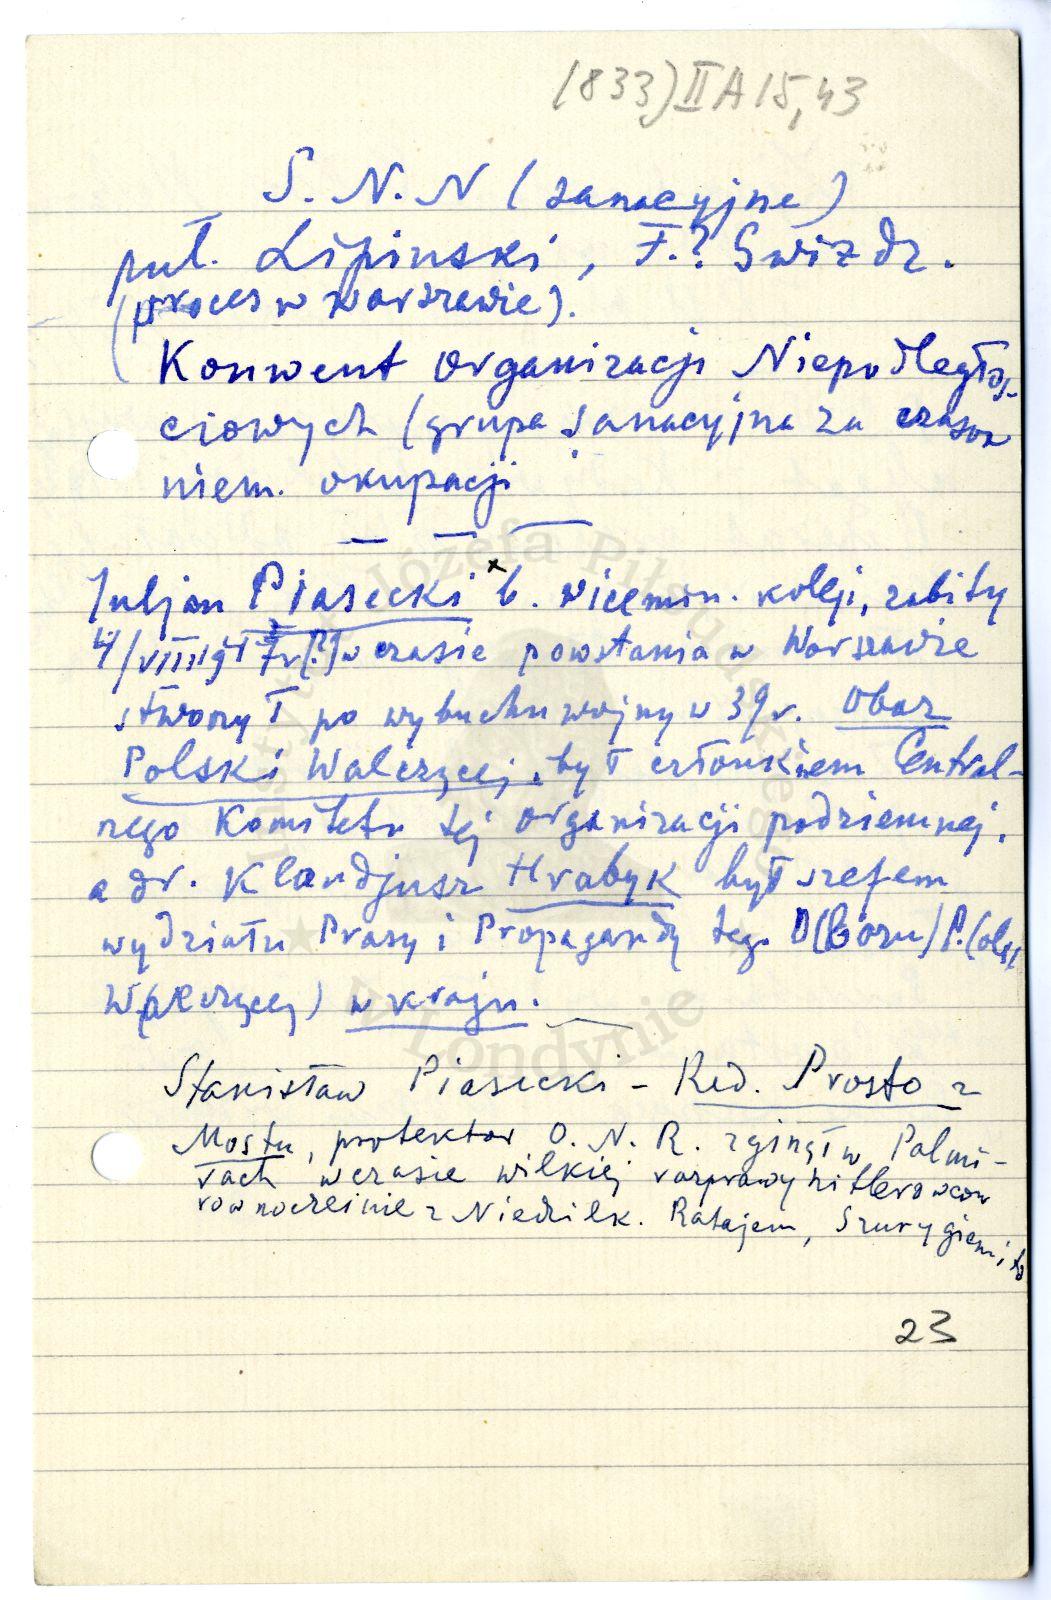 (833) II A 15, 43
S. N. N (sanacyjne)
puł. Lipinski, F.? Swizdz.
(proces w Warszawie).
Konwent Organizacji Niepodległoś-
ciowych (grupa sanacyjna za czasów
niem. okupacji
Juljan Piasecki x b. wicemin. koleji, zabity
4/VIII 1944 r [?] w czasie powstania w Warszawie
stworzył po wybuchu wojny w 39 r. Oboz
Polski Walczącej, był członkiem Central-
nego Komitetu tej organizacji podziemnej,
a dr. Klaudjusz Hrabyk był szefem
wydziału Prasy i Propagandy teg. O(bozu) P.(olsk
W(alczącej) w kraju.
Stanisław Piasecki - Red. Prosto z
Mostu, protektor O. N. R. zginął w Palmi-
rach w czasie wilkiej rozprawy hitlerowców
rownocześnie z Niedziłk. Ratajem, Szurygiem, i
23
Józefa Piłsudskiego
w Londynie